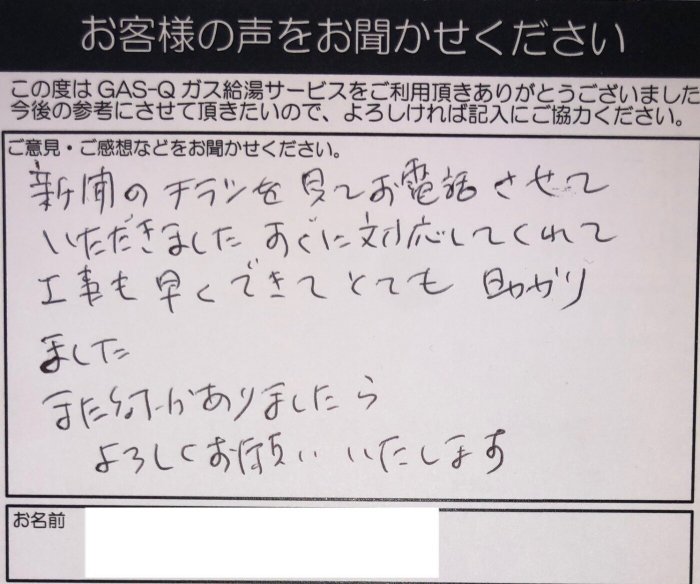 お客様の声をお聞かせください
この度は GAS-Q ガス給湯サービスをご利用頂きありがとうございました
今後の参考にさせて頂きたいので、よろしければ記入にご協力ください。
ご意見・ご感想などをお聞かせください。
新聞のチラシを見てお電話させて
いただきました すぐに対応してくれて
工事も早くできてとても助かり
ました
また何かありましたら
よろしくお願いいたします
お名前